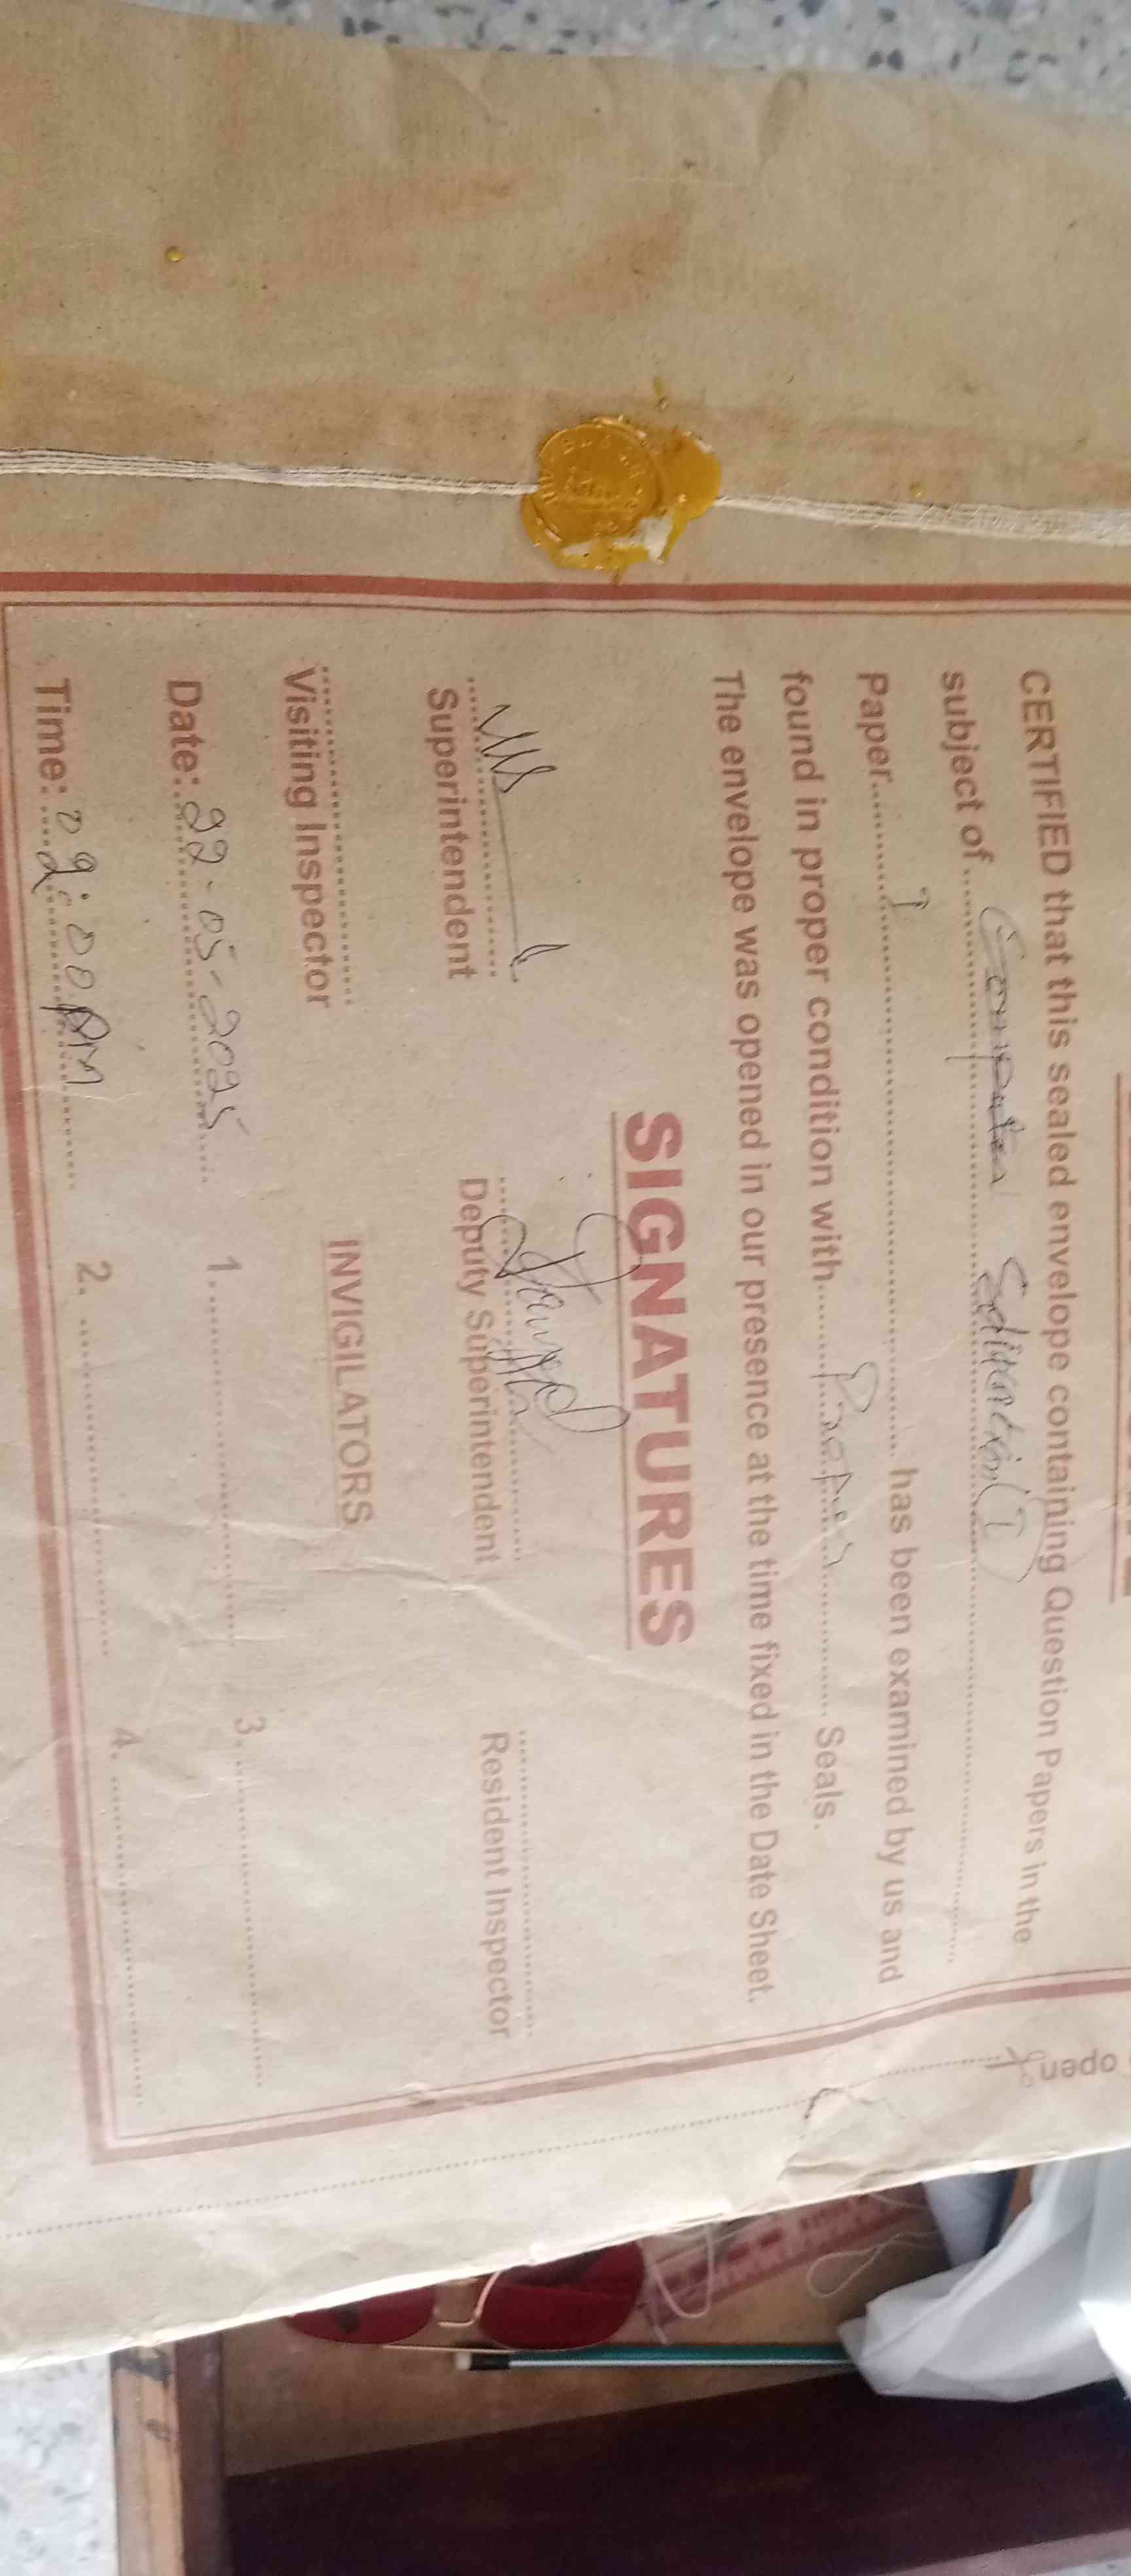 CERTIFIED that this sealed envelope containing Question Papers in the
subject of .......... Computer Education (I) ..........
Paper .......... I .......... has been examined by us and
found in proper condition with .......... Proper .......... Seals.
The envelope was opened in our presence at the time fixed in the Date Sheet.
SIGNATURES
Superintendent Deputy Superintendent Resident Inspector
Visiting Inspector INVIGILATORS
Date: 22-05-2025 1. .......... 3. ..........
Time: 09:00 AM 2. .......... 4. ..........
open